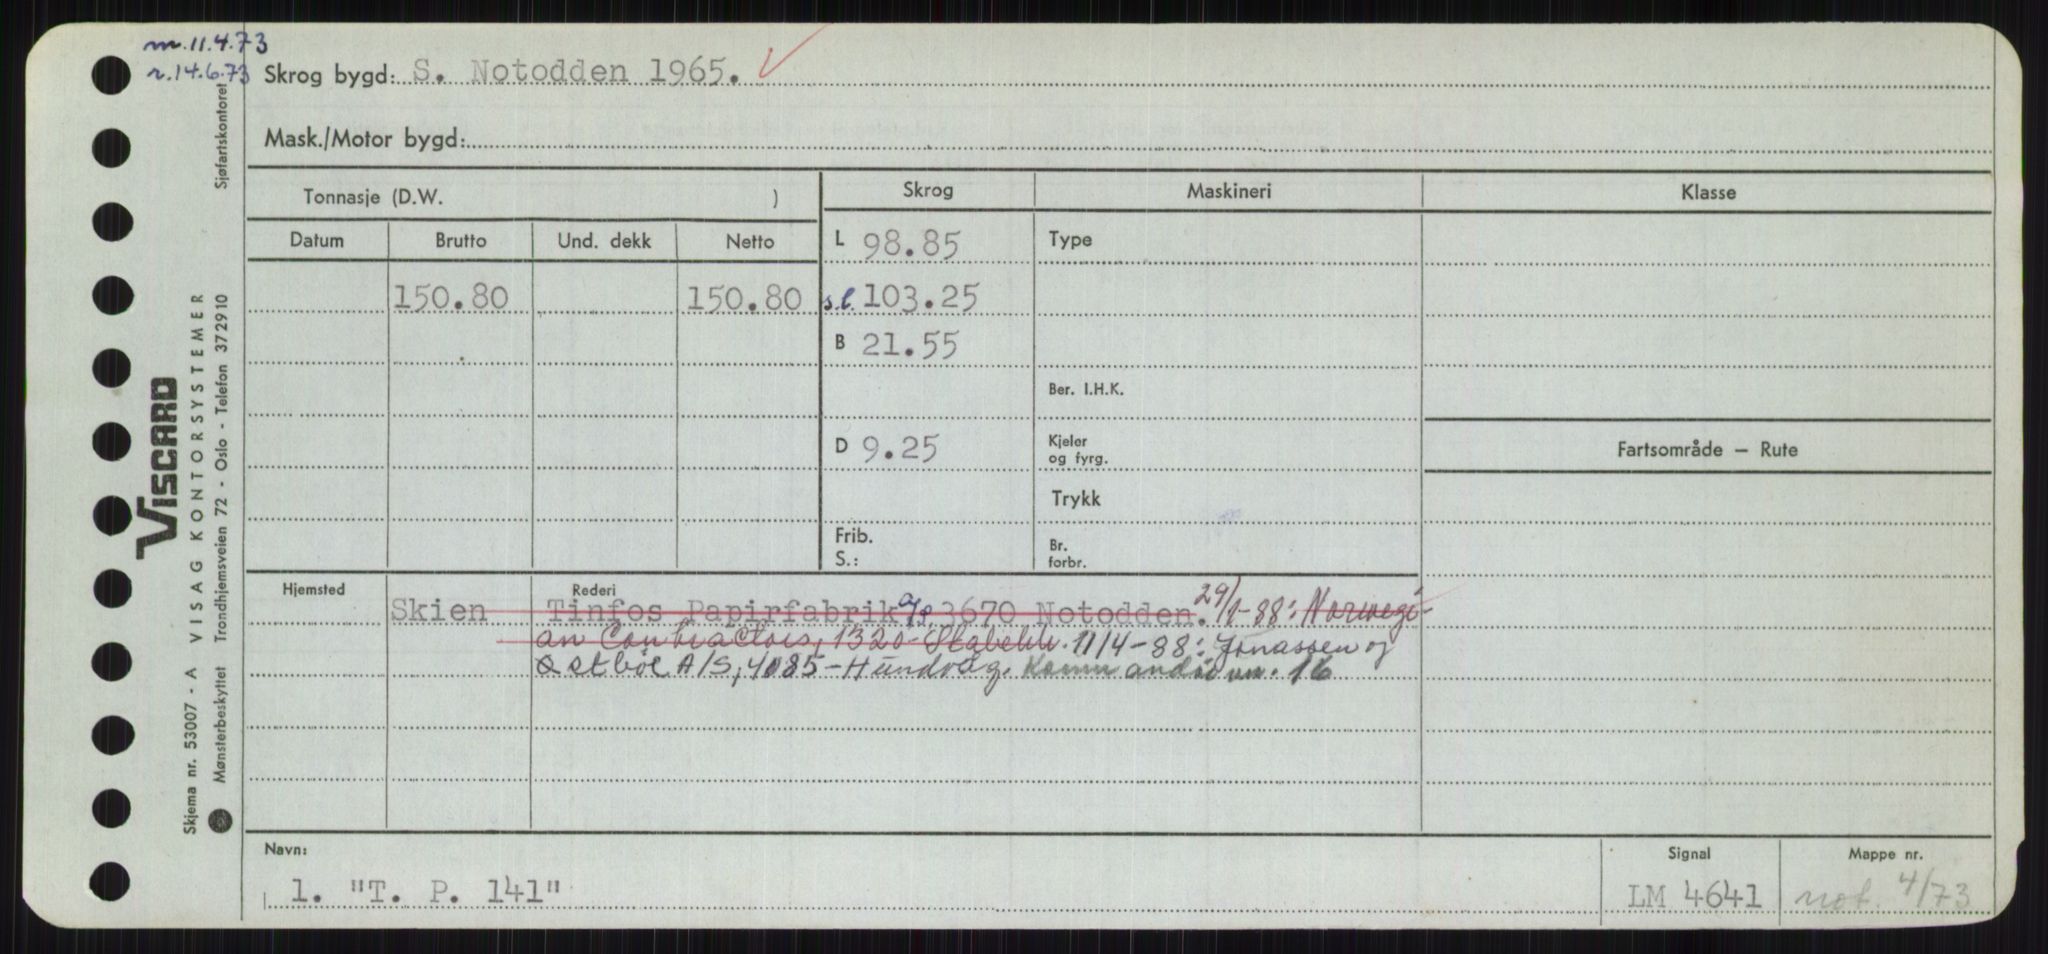 m. 11.4.73
r. 14.6.73
Skrog bygd: S. Notodden 1965.
Mask./Motor bygd:
Tonnasje (D.W. )
Skrog
Maskineri
Klasse
Datum
Brutto
Und. dekk
Netto
L 98.85
Type
150.80
150.80
s.l. 103.25
B 21.55
Ber. I.H.K.
D 9.25
Kjeler
og fyrg.
Fartsområde – Rute
Trykk
Frib.
S.:
Br.
forbr.
Hjemsted
Rederi
Skien
Tinfos Papirfabrik A/S, 3670 Notodden. 29/1-88: Norwegi-
an Contractors, 1320-Stabekk. 11/4-88: Jonassen og
Østbøl A/S, 4085-Hundvåg. Kommandörvn. 16
Navn:
Signal
Mappe nr.
1. "T. P. 141"
LM 4641
not. 4/73
Skjema nr. 53007 - A VISAG KONTORSYSTEMER
VISCARD
Mønsterbeskyttet Trondhjemsveien 72 - Oslo - Telefon 372910 Sjøfartskontoret